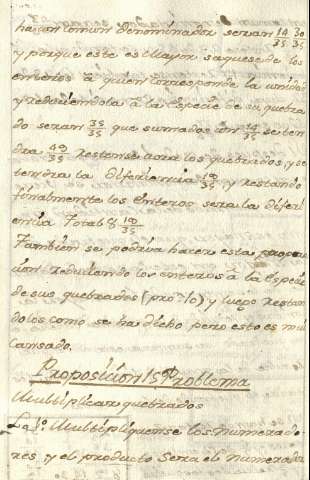 hacon comun denominador seran 14/35 30/35
y porque este es mayor saquese de los
enteros â quien corresponde la unidad
y reduciendola â la Especie de su quebra
do seran 35/35 que sumados con 14/35 se ten
dra 49/35 Restense aora los quebrados, y se
tendra la diferiencia 19/35 y restando
finalmente los enteros sera la diferi
encia Total 8 19/35
Tambien se podria hacer esta
cion reduciendo los enteros â la Especie
de sus quebrados (pro. 10) y luego restan
dolos como se ha dicho pero esto es mui
cansado.
Proposicion 15 Problema
Multiplicar quebrados
Lo 1º. Multipliquense los numerado
res, y el producto sera el numerador